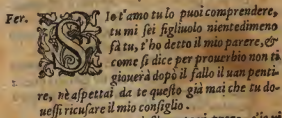 Fer. SIo t'amo tu lo puoi comprendere,
tu mi sei figliuolo nientedimeno
fà tu, t'ho detto il mio parere, &
come si dice per prouerbio non ti
giouerà dopò il fallo il uan penti-
re, nè aspettai da te questo già mai che tu do-
uessi ricusare il mio consiglio.